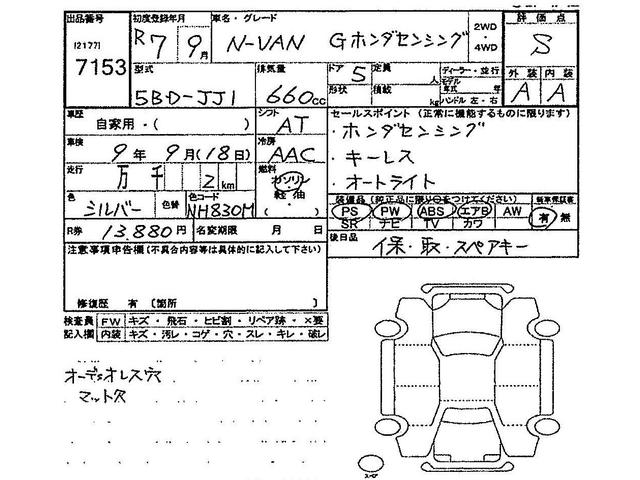 出品番号 初度登録年月 車名・グレード 2WD ・ 4WD 評価点
12177) 7153 R7 9月 N-VAN Gホンダセンシング S
型式 排気量 ドア 5 定員 人 ディーラー・並行 外装 内装
5BD-JJ1 660cc 形状 積載 kg モデル年式 年 ハンドル 左・右 A A
車歴 自家用・( ) シフト AT セールスポイント(正常に機能するものに限ります)
車検 9年 9月(18日) 冷房 AAC ・ホンダセンシング
走行 万 千 2km 燃料 ガソリン・軽油 ( ) ・キーレス
・オートライト
色 シルバー 色替 色コード NH830M 装備品(純正品に限り○をつけてください) 新車保証書
PS PW ABS エアB AW 有 無
SR ナビ TV カワ
R券 13.880円 名変期限 月 日 後日品 保・取・スペアキー
注意事項申告欄(不具合内容等は具体的に記入して下さい)
修復歴 有 [箇所 ]
検査員 FW キズ・飛石・ヒビ割・リペア跡・×要
記入欄 内装 キズ・汚レ・コゲ・穴・スレ・キレ・破レ
オーディオレス穴
マット欠
スペア